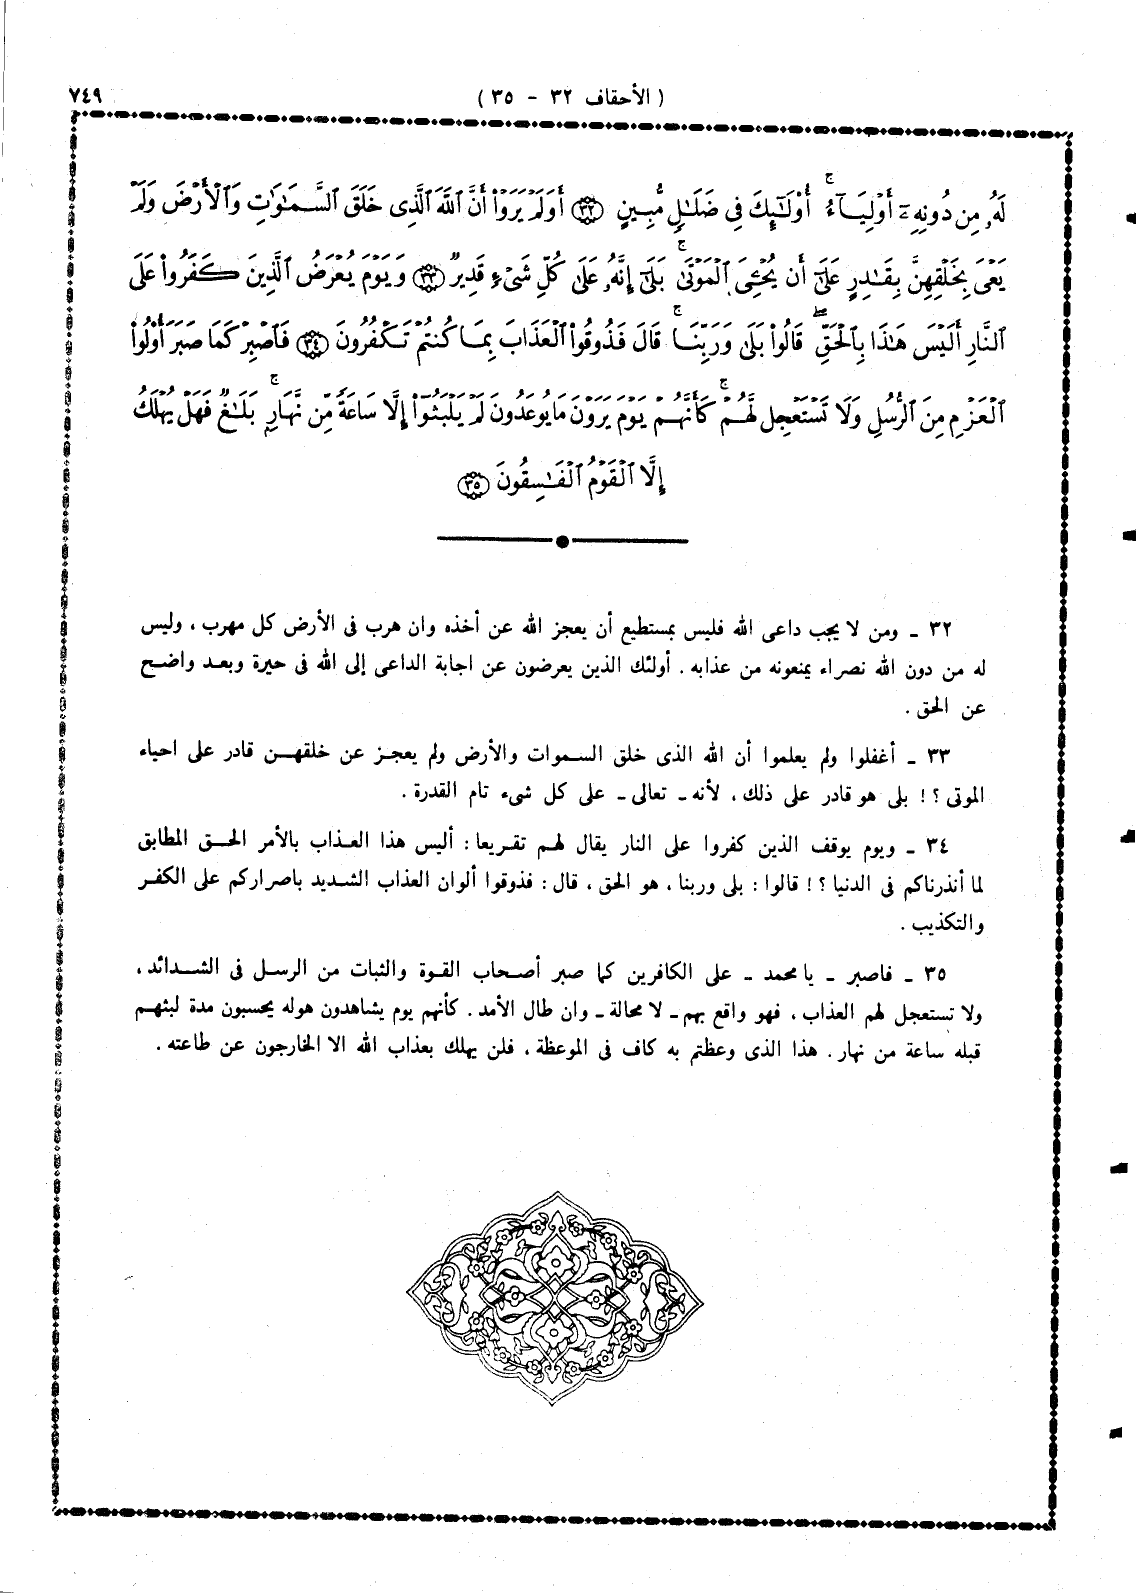 ٧٤٩
( الأحقاف ٣٢ - ٣٥ )
لَهُۥ مِن دُونِهِۦٓ أَوْلِيَآءُ ۚ أُوْلَـٰٓئِكَ فِى ضَلَـٰلٍ مُّبِينٍ ﴿٣٢﴾ أَوَلَمْ يَرَوْاْ أَنَّ ٱللَّهَ ٱلَّذِى خَلَقَ ٱلسَّمَـٰوَٰتِ وَٱلْأَرْضَ وَلَمْ
يَعْىَ بِخَلْقِهِنَّ بِقَـٰدِرٍ عَلَىٰٓ أَن يُحْـِۧىَ ٱلْمَوْتَىٰ ۚ بَلَىٰٓ إِنَّهُۥ عَلَىٰ كُلِّ شَىْءٍ قَدِيرٌ ﴿٣٣﴾ وَيَوْمَ يُعْرَضُ ٱلَّذِينَ كَفَرُواْ عَلَى
ٱلنَّارِ أَلَيْسَ هَـٰذَا بِٱلْحَقِّ ۖ قَالُواْ بَلَىٰ وَرَبِّنَا ۚ قَالَ فَذُوقُواْ ٱلْعَذَابَ بِمَا كُنتُمْ تَكْفُرُونَ ﴿٣٤﴾ فَٱصْبِرْ كَمَا صَبَرَ أُوْلُواْ
ٱلْعَزْمِ مِنَ ٱلرُّسُلِ وَلَا تَسْتَعْجِل لَّهُمْ ۚ كَأَنَّهُمْ يَوْمَ يَرَوْنَ مَا يُوعَدُونَ لَمْ يَلْبَثُوٓاْ إِلَّا سَاعَةً مِّن نَّهَارٍۭ ۚ بَلَـٰغٌ ۚ فَهَلْ يُهْلَكُ
إِلَّا ٱلْقَوْمُ ٱلْفَـٰسِقُونَ ﴿٣٥﴾
٣٢ ـ ومن لا يجب داعى الله فليس بمستطيع أن يعجز الله عن أخذه وان هرب فى الأرض كل مهرب ، وليس
له من دون الله نصراء يمنعونه من عذابه . أولئك الذين يعرضون عن اجابة الداعى إلى الله فى حيرة وبعد واضح
عن الحق .
٣٣ ـ أغفلوا ولم يعلموا أن الله الذى خلق السموات والأرض ولم يعجز عن خلقهن قادر على احياء
الموتى ؟! بلى هو قادر على ذلك ، لأنه ـ تعالى ـ على كل شىء تام القدرة .
٣٤ ـ ويوم يوقف الذين كفروا على النار يقال لهم تقريعا : أليس هذا العذاب بالأمر الحق المطابق
لما أنذرناكم فى الدنيا ؟! قالوا : بلى وربنا ، هو الحق ، قال : فذوقوا ألوان العذاب الشديد باصراركم على الكفر
والتكذيب .
٣٥ ـ فاصبر ـ يا محمد ـ على الكافرين كما صبر أصحاب القوة والثبات من الرسل فى الشدائد ،
ولا تستعجل لهم العذاب ، فهو واقع بهم ـ لا محالة ـ وان طال الأمد . كأنهم يوم يشاهدون هوله يحسبون مدة لبثهم
قبله ساعة من نهار . هذا الذى وعظتم به كاف فى الموعظة ، فلن يهلك بعذاب الله الا الخارجون عن طاعته .